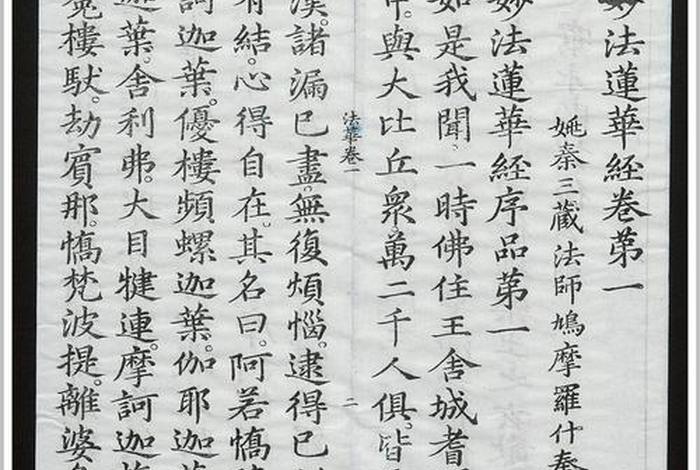 妙法蓮華經卷第一
姚秦三藏法師鳩摩羅什奉
妙法蓮華經序品第一
如是我聞。一時佛住王舍城耆
中。與大比丘眾萬二千人俱。皆
法華卷一 二
漢。諸漏已盡。無復煩惱。逮得已
有結。心得自在。其名曰。阿若憍
訶迦葉。優樓頻螺迦葉。伽耶迦
迦葉。舍利弗。大目犍連。摩訶迦
㝹樓馱。劫賓那。憍梵波提。離婆